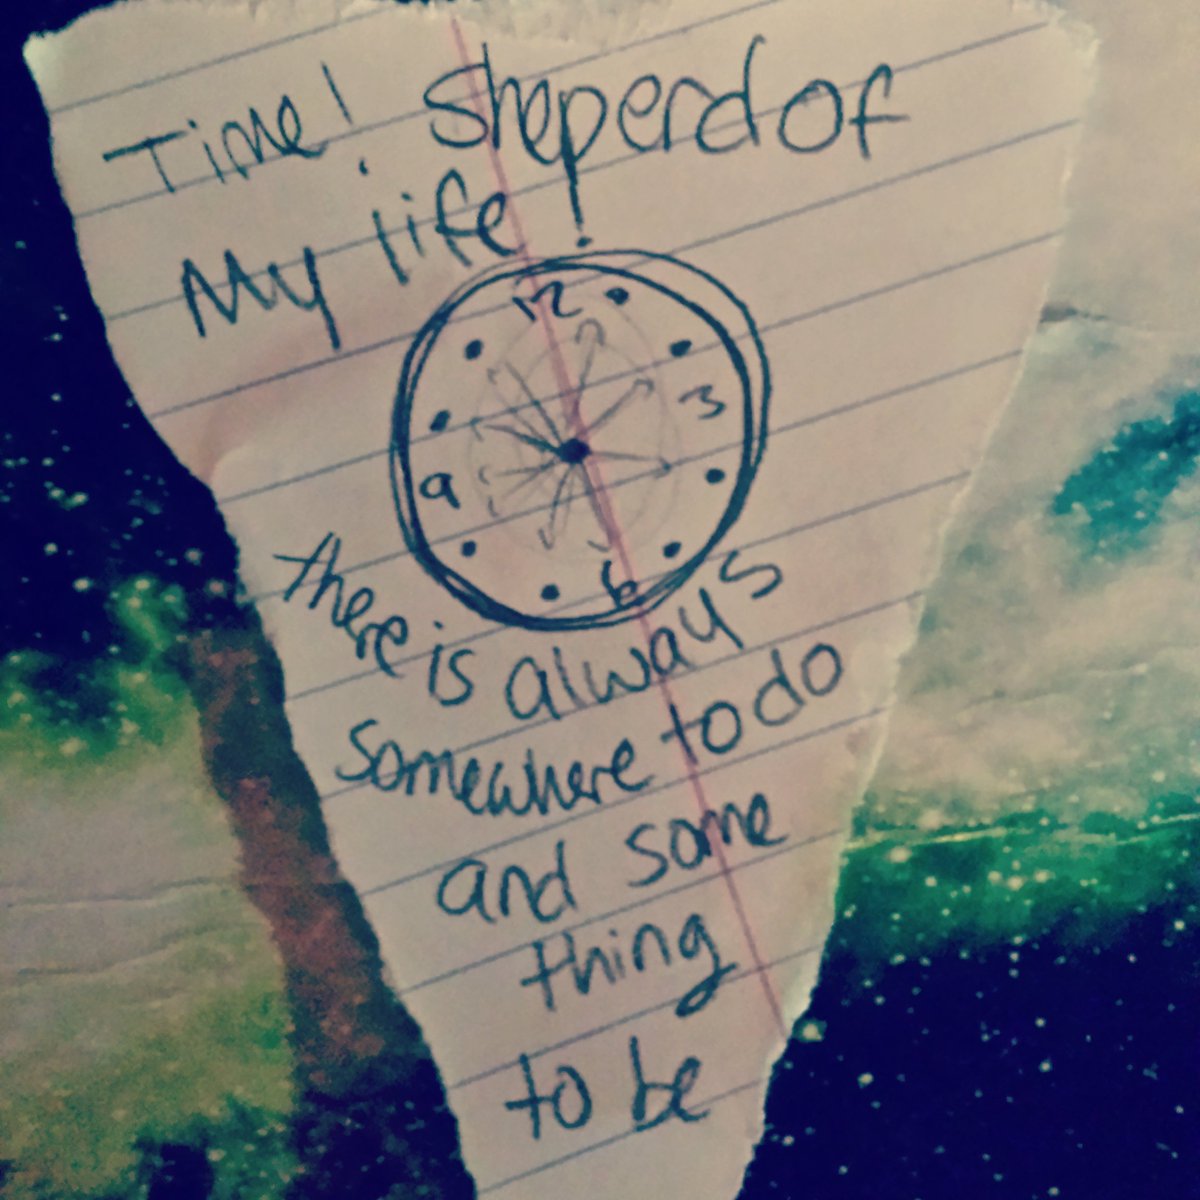 Time! Sheperd of
My life!
12
3
9
6
there is always
somewhere to do
and some
thing
to be